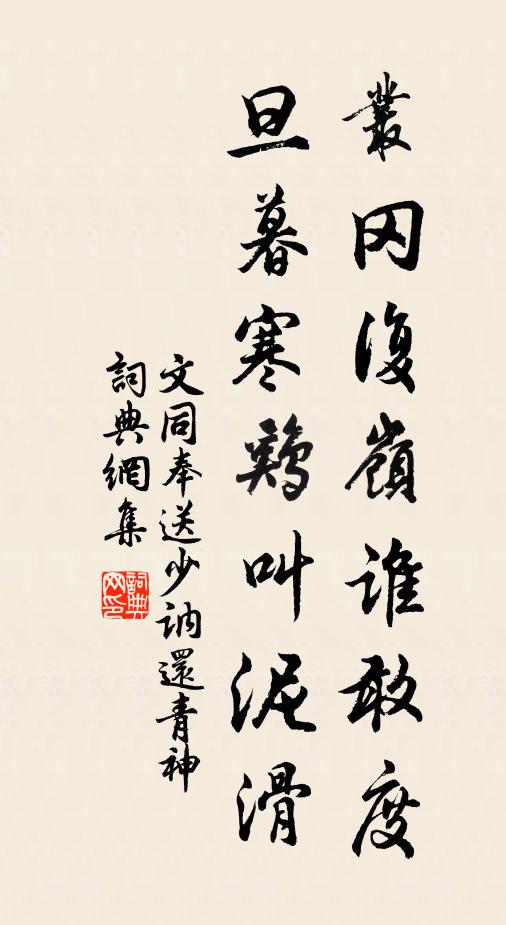 叢冈復嶺誰敢度
旦暮寒鷄叫泥滑
文同奉送少訥還青神
詞典網集
詞典网印